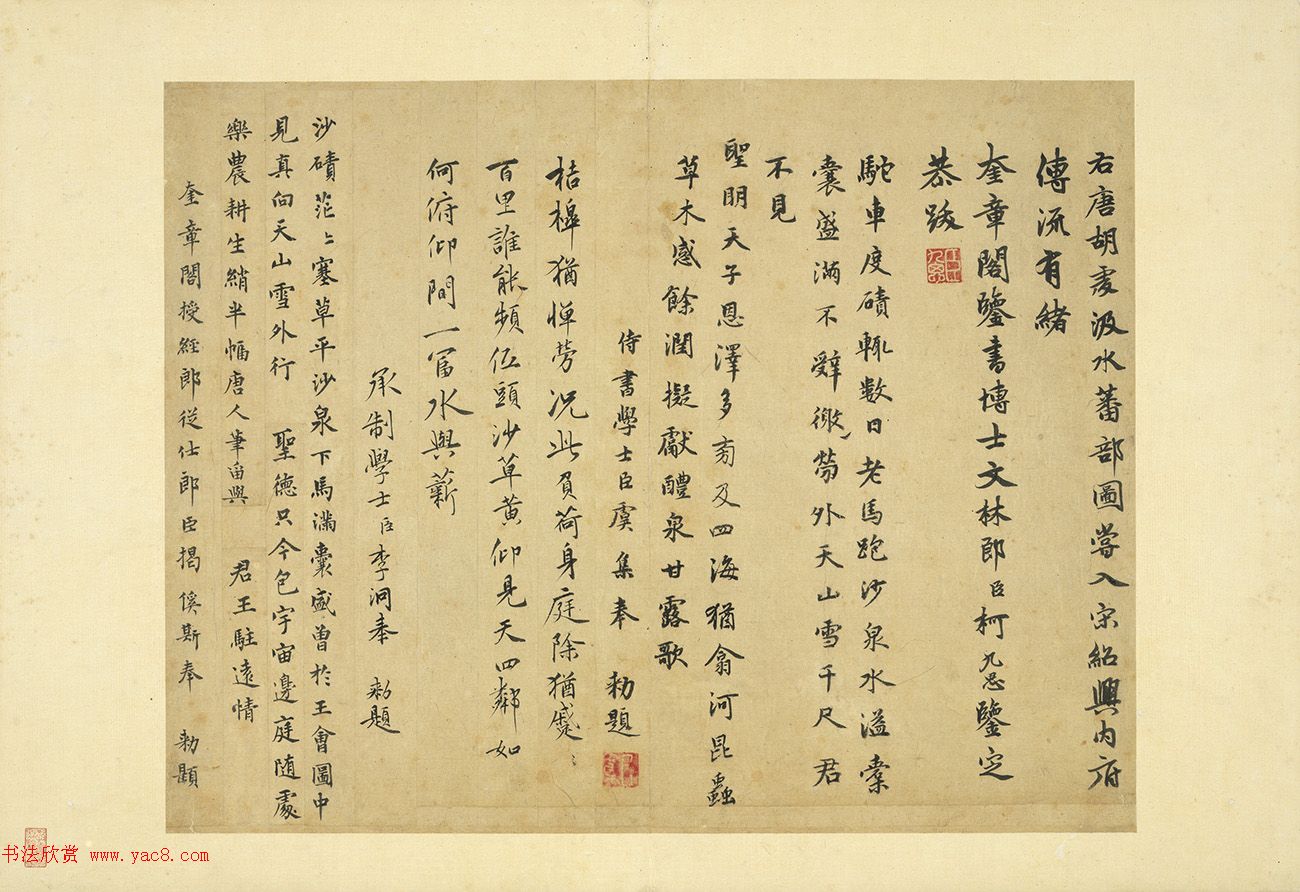 右唐胡虔汲水蕃部圖嘗入宋紹興內府
傳流有緒
奎章閣鑒書博士文林郎臣柯九思鑒定
恭跋
駝車度磧輒數日老馬跑沙泉水溢橐
囊盛滿不辭勞外天山雪千尺君
不見
聖朙天子恩澤多旁及四海猶翕河昆蟲
草木感餘潤擬獻醴泉甘露歌
侍書學士臣虞集奉 勑題
桔槔猶憚勞況此負荷身庭除猶蹙〻
百里誰能頻低頭沙草黃仰見天四鄰如
何俯仰間一留水與薪
承制學士臣李泂奉 勑題
沙磧茫〻塞草平沙泉下馬滿囊盛曾於王會圖中
見真向天山雪外行 聖德只今包宇宙邊庭隨處
樂農耕生綃半幅唐人筆留與 君王駐遠情
奎章閣授經郎從仕郎臣揭傒斯奉 勑題
书法欣赏 www.yac8.com